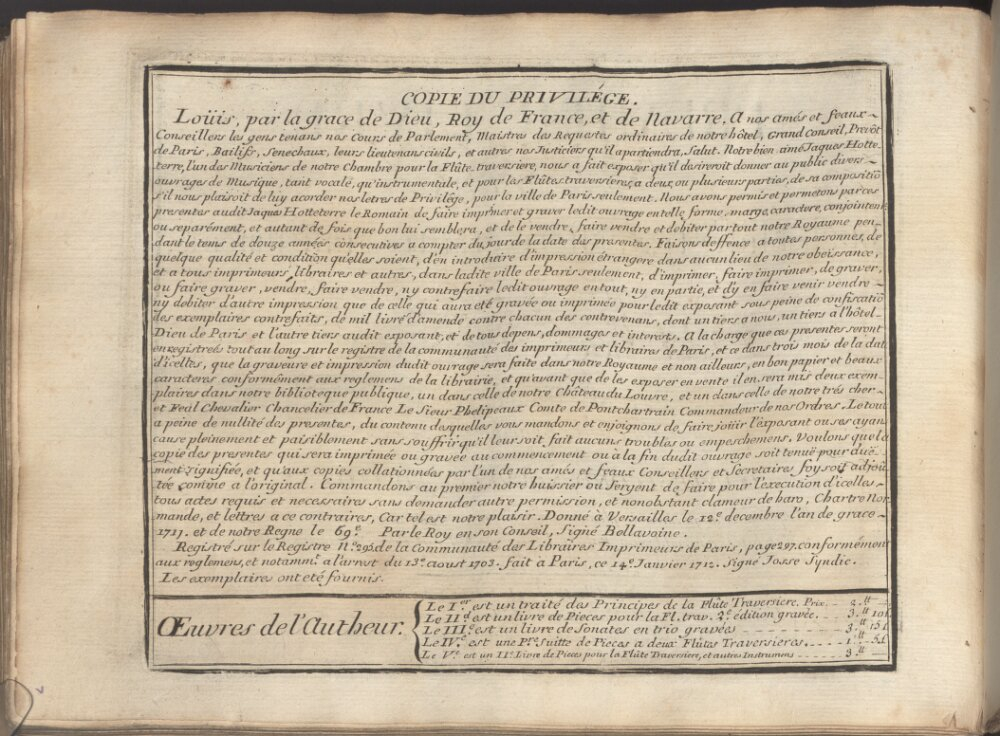 COPIE DU PRIVILÉGE.
Loüis, par la grace de Dieu, Roy de France, et de Navarre, A nos amés et feaux
Conseillers les gens tenans nos Cours de Parlement, Maistres des Requestes ordinaires de notre hôtel, Grand Conseil, Prevôt
de Paris, Bailifs, Senechaux, leurs lieutenans civils, et autres nos Justiciers qu'il apartiendra, Salut. Notre bien aimé Jaques Hotte-
terre, l'un des Musiciens de notre Chambre pour la Flûte-traversiere, nous a fait exposer qu'il desireroit donner au public divers
ouvrages de Musique, tant vocale, qu'instrumentale, et pour les Flûtes traversieres, a deux, ou plusieurs parties, de sa compositiõ
s'il nous plaisoit de luy acorder nos letres de Privilége, pour la ville de Paris seulement. Nous avons permis et permetons par ces
presentes audit Jaques Hotteterre le Romain de faire imprimer et graver ledit ouvrage en telle forme, marge, caractere, conjointem.t
ou separément, et autant de fois que bon lui semblera, et de le vendre, faire vendre et debiter par tout notre Royaume pen-
dant le tems de douze années consecutives a compter du jour de la date des presentes. Faisons deffence a toutes personnes, de
quelque qualité et condition qu'elles soient, d'en introduire d'impression étrangere dans aucun lieu de notre obeissance,
et a tous imprimeurs, libraires et autres, dans ladite ville de Paris seulement, d'imprimer, faire imprimer, de graver,
ou faire graver, vendre, faire vendre, ny contrefaire ledit ouvrage en tout, ny en partie, et d'y en faire venir vendre
ny debiter d'autre impression que de celle qui aura eté gravée ou imprimée pour ledit exposant sous peine de confiscatiõ
des exemplaires contrefaits, de mil livré d'amende contre chacun des contrevenans, dont un tiers a nous, un tiers a l'hôtel-
Dieu de Paris et l'autre tiers audit exposant, et de tous depens, dommages et interests. A la charge que ces presentes seront
enregistreés tout au long sur le registre de la communauté des imprimeurs et libraires de Paris, et ce dans trois mois de la date
d'icelles, que la graveure et impression dudit ouvrage sera faite dans notre Royaume et non ailleurs, en bon papier et beaux
caracteres conformément aux reglemens de la librairie, et qu'avant que de les exposer en vente il en sera mis deux exem-
plaires dans notre biblioteque publique, un dans celle de notre Château du Louvre, et un dans celle de notre trés cher
et Feal Chevalier Chancelier de France Le Sieur Phelipeaux Comte de Pontchartrain Commandeur de nos Ordres. Le tout
a peine de nullité des presentes, du contenu desquelles vous mandons et enjoignons de faire joüir l'exposant ou ses ayans
cause pleinement et paisiblement sans souffrir qu'il leur soit fait aucuns troubles ou empeschemens. Voulons que la
copie des presentes qui sera imprimée ou gravée au commencement ou à la fin dudit ouvrage soit tenuë pour duë-
ment signifiée, et qu'aux copies collationnées par l'un de nos amés et feaux Conseillers et Secretaires foy soit adjou-
tée comme a l'original. Commandons au premier notre huissier ou Sergent de faire pour l'execution d'icelles
tous actes requis et necessaires sans demander autre permission, et nonobstant clameur de haro, Chartre Nor-
mande, et lettres a ce contraires, Car tel est notre plaisir. Donné à Versailles le 12.e decembre l'an de grace
1711. et de notre Regne le 69.e Par le Roy en son Conseil, Signé Bellavoine.
Registré sur le Registre N.o 295. de la Communauté des Libraires Imprimeurs de Paris, page 297. conformément
aux reglemens, et notamm.t a l'arrest du 13.e aoust 1703. fait à Paris, ce 14.e Janvier 1712. Signé Josse Syndic.
Les exemplaires ont eté fournis.
Œuvres de l'Autheur.
Le I.er est un traité des Principes de la Flûte Traversiere. Prix 2.tt
Le II.d est un livre de Pieces pour la Fl. trav. 2.e edition gravée. 3.tt 10 s.
Le III.e est un livre de Sonates en trio gravées 3.tt 15 s.
Le IV.e est une P.re Suitte de Pieces a deux Flûtes Traversieres. 1.tt 5 s.
Le V.e est un II.e Livre de Pieces pour la Flûte Traversiere, et autres Instrumens 3.tt